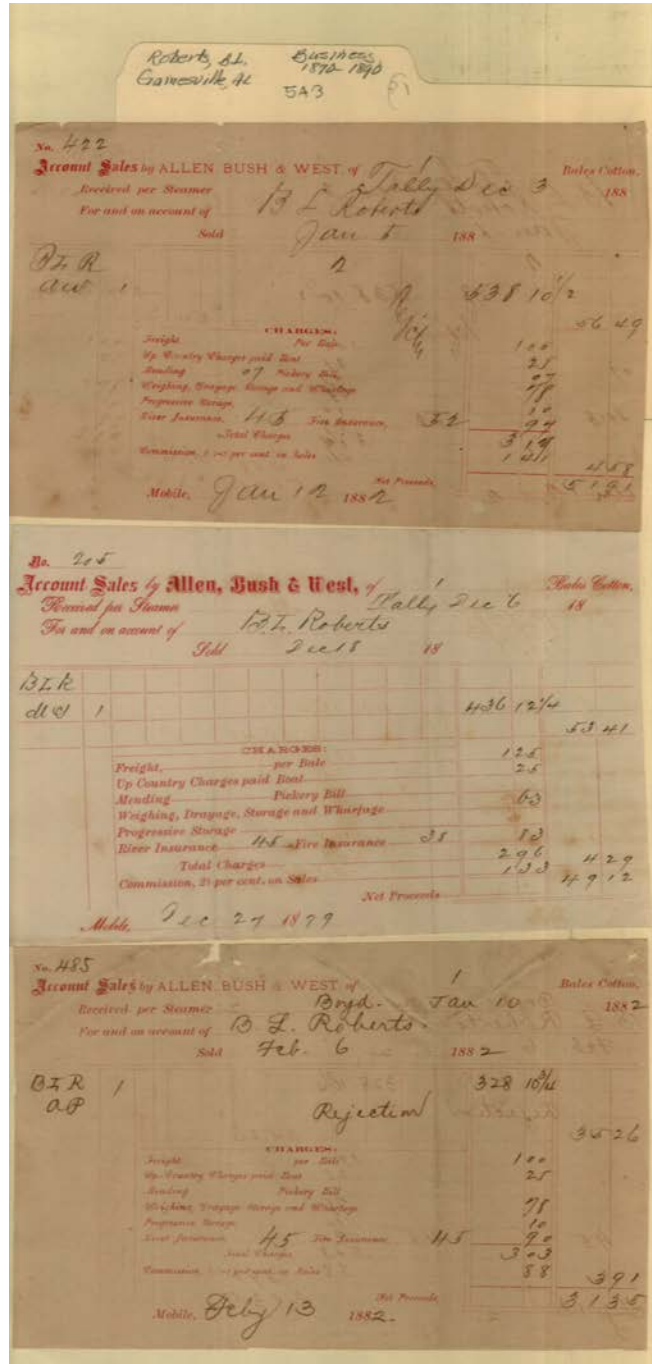 Roberts, B.L. Business
Gainesville, AL 1870-1890
5A3
No. 422
Account Sales by ALLEN, BUSH & WEST, of 1 Bales Cotton,
Received per Steamer Tally Dec 3 188
For and on account of B L Roberts
Sold Jan 5 188
B L R
1 538 10 1/2
56 49
CHARGES:
Freight, Per Bale 1 00
Up Country Charges paid Boat 25
Mending 07 Pickery Bill 07
Weighing, Drayage Storage and Wharfage 78
Progressive Storage, 10
River Insurance, 45 Fire Insurance, 52 94
Total Charges 3 14
Commission, 2½ per cent. on Sales 1 41 4 58
Net Proceeds, 51 91
Mobile, Jan 12 1882
No. 205
Account Sales by Allen, Bush & West, of 1 Bales Cotton,
Received per Steamer Tally Dec 6 18
For and on account of B L Roberts
Sold Dec 18 18
B L R
1 436 12 1/4
53 41
CHARGES:
Freight, per Bale 1 25
Up Country Charges paid Boat 25
Mending Pickery Bill
Weighing, Drayage, Storage and Wharfage 63
Progressive Storage
River Insurance 45 Fire Insurance 38 83
Total Charges 2 96
Commission, 2½ per cent. on Sales 1 33 4 29
Net Proceeds 49 12
Mobile, Dec 27 1879
No. 485
Account Sales by ALLEN, BUSH & WEST, of 1 Bales Cotton,
Received per Steamer Boyd. Jan 10 1882
For and on account of B L. Roberts.
Sold Feb. 6 1882
B L R 1 328 10 3/4
Rejection
35 26
CHARGES:
Freight per Bale 1 00
Up Country Charges paid Boat 25
Mending Pickery Bill
Weighing, Drayage Storage and Wharfage 78
Progressive Storage 10
River Insurance 45 Fire Insurance 45 90
Total Charges 3 03
Commission, 2½ per cent. on Sales 88 3 91
Net Proceeds 31 35
Mobile, Feby 13 1882.